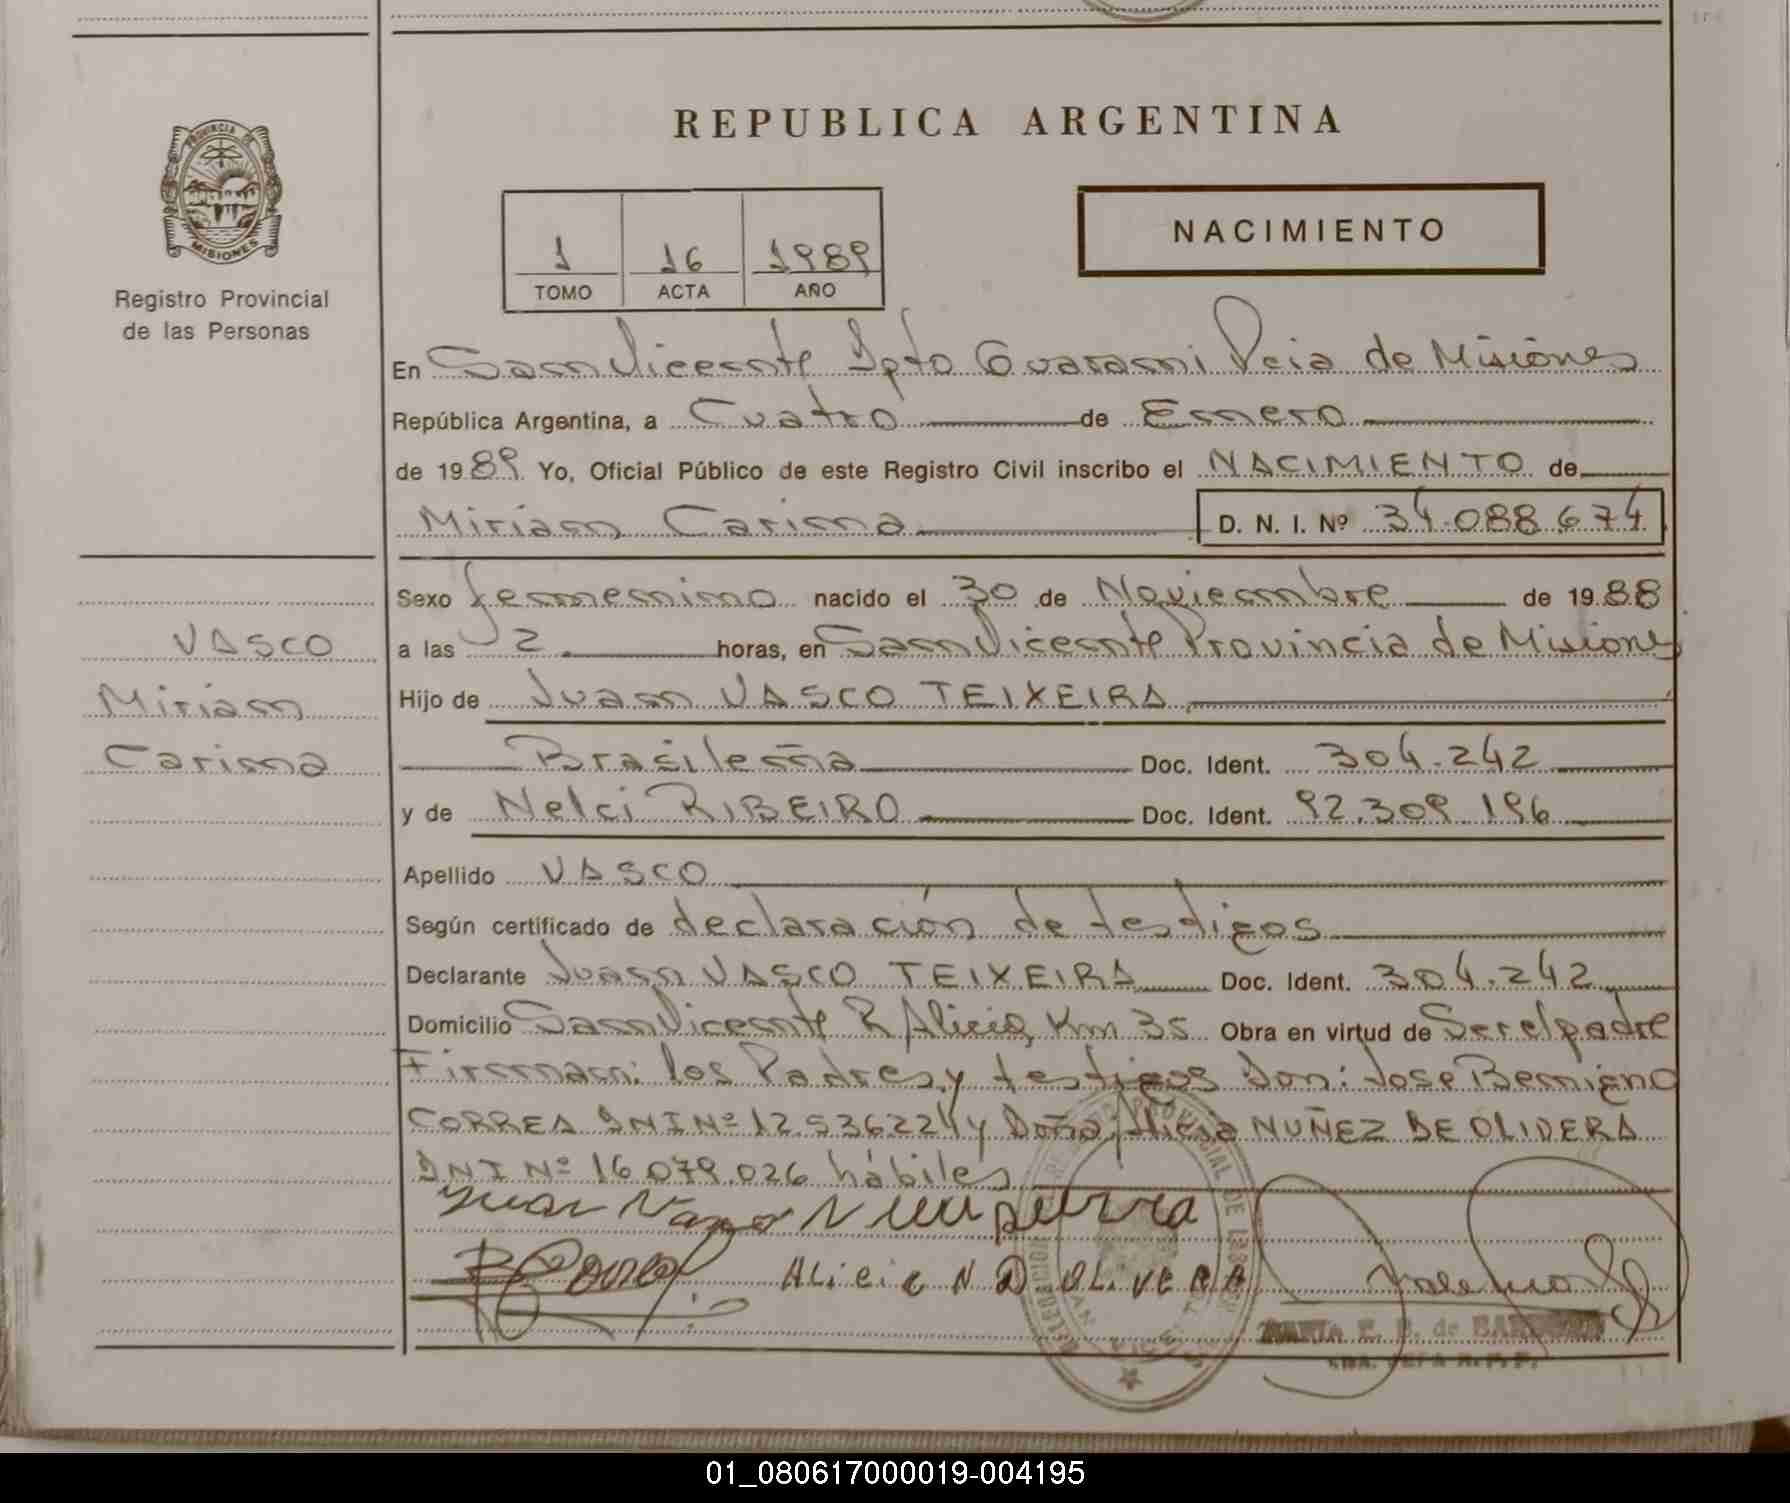 REPUBLICA ARGENTINA
PROVINCIA DE
MISIONES
Registro Provincial
de las Personas
1 16 1989
TOMO ACTA AÑO
NACIMIENTO
En San Vicente Dpto Guarani Pcia de Misiones
República Argentina, a Cuatro de Enero
de 1989 Yo, Oficial Público de este Registro Civil inscribo el NACIMIENTO de
Miriam Carina D. N. I. Nº 34.088.674
Sexo femenino nacido el 30 de Noviembre de 1988
VASCO
a las 2 horas, en San Vicente Provincia de Misiones
Miriam
Hijo de Juan VASCO TEIXEIRA
Carina
Brasileña Doc. Ident. 304.242
y de Nelci RIBEIRO Doc. Ident. 92.309.196
Apellido VASCO
Según certificado de declaración de testigos
Declarante Juan VASCO TEIXEIRA Doc. Ident. 304.242
Domicilio San Vicente R Alicia Km 35 Obra en virtud de Ser el padre
Firman: los Padres y testigos Don: Jose Benigno
CORREA DNI Nº 12536224 y Doña Alicia NUÑEZ DE OLIVERA
DNI Nº 16.079.026 hábiles
Juan
Alicia N D OLIVERA
01_080617000019-004195